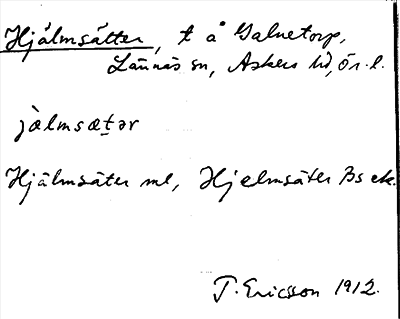 Hjälmsätter, t å Galnetorp,
Lännäs sn, Askers hd, ör. l.
jälmsætər
Hjälmsäter ml, Hjelmsäter Bs ek.
T. Ericsson 1912.